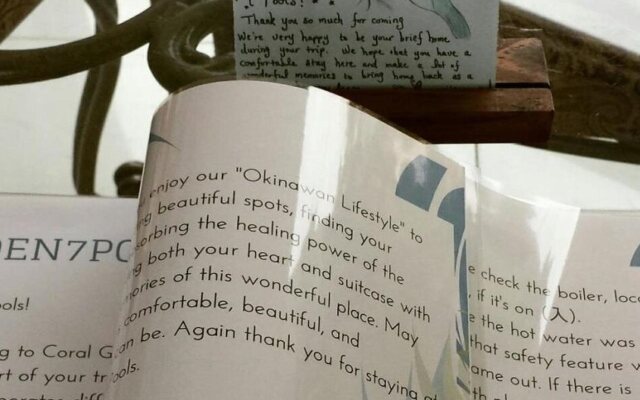 Tools! *
Thank you so much for coming
We're very happy to be your brief home
during your trip. We hope that you have a
comfortable stay here and make a lot of
wonderful memories to bring home back as a
enjoy our "Okinawan Lifestyle" to
beautiful spots, finding your
orbing the healing power of the
both your heart and suitcase with
ories of this wonderful place. May
comfortable, beautiful, and
an be. Again thank you for staying at
ools.
EN7PO
ools!
g to Coral G
rt of your tr
e check the boiler, loc
, if it's on (入).
e the hot water was
that safety feature w
ame out. If there is